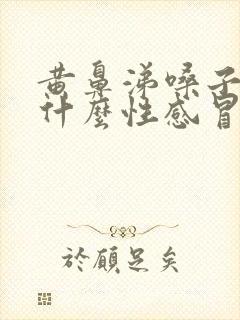 黄鼻涕嗓子
什麼性感冒
於願足矣